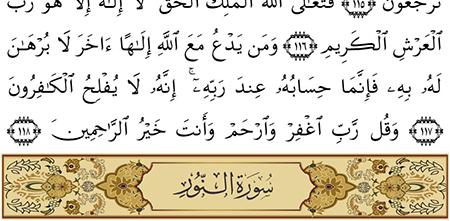 تُرْجَعُونَ ﴿١١٥﴾ فَتَعَٰلَى ٱللَّهُ ٱلْمَلِكُ ٱلْحَقُّ ۖ لَآ إِلَٰهَ إِلَّا هُوَ رَبُّ
ٱلْعَرْشِ ٱلْكَرِيمِ ﴿١١٦﴾ وَمَن يَدْعُ مَعَ ٱللَّهِ إِلَٰهًا ءَاخَرَ لَا بُرْهَٰنَ
لَهُۥ بِهِۦ فَإِنَّمَا حِسَابُهُۥ عِندَ رَبِّهِۦٓ ۚ إِنَّهُۥ لَا يُفْلِحُ ٱلْكَٰفِرُونَ
﴿١١٧﴾ وَقُل رَّبِّ ٱغْفِرْ وَٱرْحَمْ وَأَنتَ خَيْرُ ٱلرَّٰحِمِينَ ﴿١١٨﴾
سُورَةُ النُّورِ